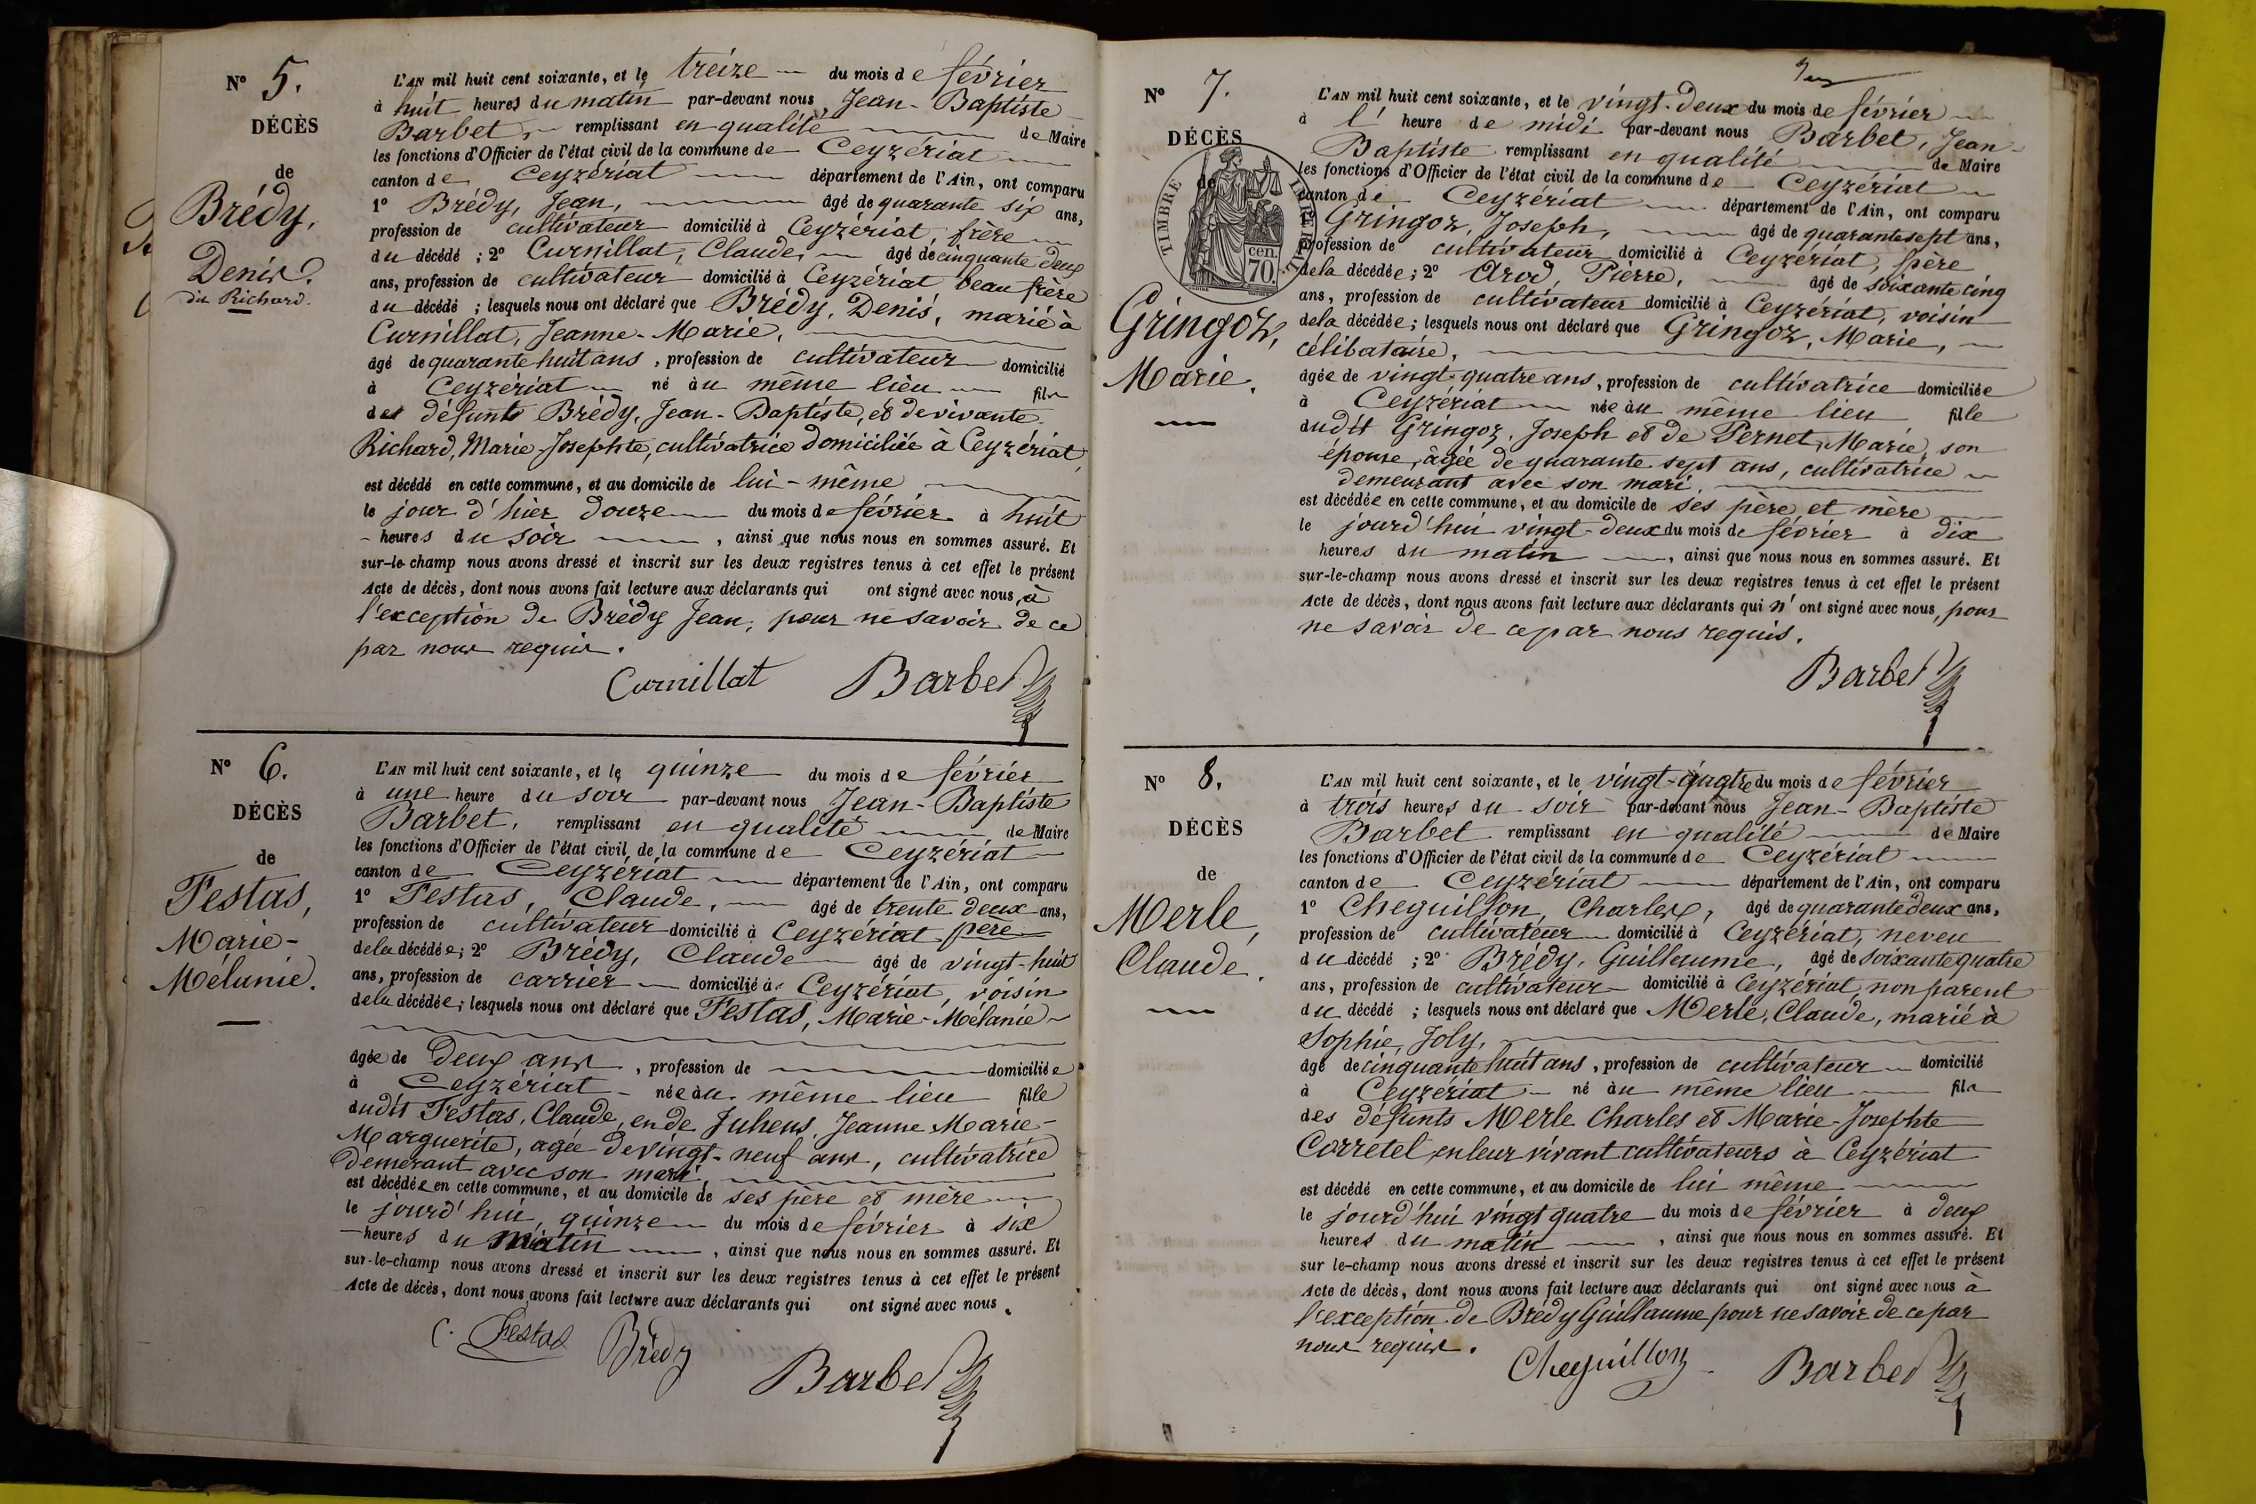 N° 5.
DÉCÈS
de
Brédy,
Denis.
dit Richard.
L'AN mil huit cent soixante, et le treize du mois de février
à huit heures du matin par-devant nous, Jean-Baptiste
Barbet, remplissant en qualité de Maire
les fonctions d'Officier de l'état civil de la commune de Ceyzériat
canton de Ceyzériat département de l'Ain, ont comparu
1° Brédy, Jean, âgé de quarante six ans,
profession de cultivateur domicilié à Ceyzériat, frère
du décédé ; 2° Curnillat, Claude, âgé de cinquante deux
ans, profession de cultivateur domicilié à Ceyzériat beau frère
du décédé ; lesquels nous ont déclaré que Brédy, Denis, marié à
Curnillat, Jeanne-Marie,
âgé de quarante huit ans, profession de cultivateur domicilié
à Ceyzériat né au même lieu fils
des défunts Brédy, Jean-Baptiste, et de vivante
Richard, Marie Josephte, cultivatrice domiciliée à Ceyzériat,
est décédé en cette commune, et au domicile de lui-même
le jour d'hier douze du mois de février à huit
heures du soir, ainsi que nous nous en sommes assuré. Et
sur-le-champ nous avons dressé et inscrit sur les deux registres tenus à cet effet le présent
Acte de décès, dont nous avons fait lecture aux déclarants qui ont signé avec nous, à
l'exception de Brédy Jean, pour ne savoir de ce
par nous requis.
Curnillat Barbet
N° 6.
DÉCÈS
de
Festas,
Marie-
Mélanie.
L'AN mil huit cent soixante, et le quinze du mois de février
à une heure du soir par-devant nous Jean-Baptiste
Barbet, remplissant en qualité de Maire
les fonctions d'Officier de l'état civil de la commune de Ceyzériat
canton de Ceyzériat département de l'Ain, ont comparu
1° Festas, Claude, âgé de trente deux ans,
profession de cultivateur domicilié à Ceyzériat père
de la décédée ; 2° Brédy, Claude âgé de vingt-huit
ans, profession de carrier domicilié à Ceyzériat, voisin
de la décédée ; lesquels nous ont déclaré que Festas, Marie-Mélanie
âgée de deux ans, profession de domiciliée
à Ceyzériat née au même lieu fille
dudit Festas, Claude, en de Juhens, Jeanne Marie-
Marguerite, agée de vingt-neuf ans, cultivatrice
demerant avec son mari,
est décédée en cette commune, et au domicile de ses père et mère
le jourd'hui, quinze du mois de février à six
heures du matin, ainsi que nous nous en sommes assuré. Et
sur-le-champ nous avons dressé et inscrit sur les deux registres tenus à cet effet le présent
Acte de décès, dont nous avons fait lecture aux déclarants qui ont signé avec nous.
C. Festas Brédy Barbet
N° 7.
DÉCÈS
de
TIMBRE IMPÉRIAL
cen.
70.
Gringoz,
Marie.
L'AN mil huit cent soixante, et le vingt-deux du mois de février
à l'heure de midi par-devant nous Barbet, Jean-
Baptiste remplissant en qualité de Maire
les fonctions d'Officier de l'état civil de la commune de Ceyzériat
canton de Ceyzériat département de l'Ain, ont comparu
1° Gringoz, Joseph, âgé de quarante sept ans,
profession de cultivateur domicilié à Ceyzériat, père
de la décédée ; 2° Arod, Pierre, âgé de soixante cinq
ans, profession de cultivateur domicilié à Ceyzériat, voisin
de la décédée ; lesquels nous ont déclaré que Gringoz, Marie,
célibataire,
âgée de vingt-quatre ans, profession de cultivatrice domiciliée
à Ceyzériat née au même lieu fille
dudit Gringoz, Joseph et de Pernet, Marie, son
épouse, âgée de quarante sept ans, cultivatrice
demeurant avec son mari,
est décédée en cette commune, et au domicile de ses père et mère
le jourd'hui vingt-deux du mois de février à dix
heures du matin, ainsi que nous nous en sommes assuré. Et
sur-le-champ nous avons dressé et inscrit sur les deux registres tenus à cet effet le présent
Acte de décès, dont nous avons fait lecture aux déclarants qui n'ont signé avec nous, pour
ne savoir de ce par nous requis.
Barbet
N° 8.
DÉCÈS
de
Merle,
Claude.
L'AN mil huit cent soixante, et le vingt-quatre du mois de février
à trois heures du soir par-devant nous Jean-Baptiste
Barbet remplissant en qualité de Maire
les fonctions d'Officier de l'état civil de la commune de Ceyzériat
canton de Ceyzériat département de l'Ain, ont comparu
1° Cheguillon, Charles, âgé de quarante deux ans,
profession de cultivateur domicilié à Ceyzériat, neveu
du décédé ; 2° Brédy, Guillaume, âgé de soixante quatre
ans, profession de cultivateur domicilié à Ceyzériat, non parent
du décédé ; lesquels nous ont déclaré que Merle, Claude, marié à
Sophie, Joly,
âgé de cinquante huit ans, profession de cultivateur domicilié
à Ceyzériat né au même lieu fils
des défunts Merle Charles et Marie-Josephte
Corretel en leur vivant cultivateurs à Ceyzériat
est décédé en cette commune, et au domicile de lui même
le jourd'hui vingt quatre du mois de février à deux
heures du matin, ainsi que nous nous en sommes assuré. Et
sur le-champ nous avons dressé et inscrit sur les deux registres tenus à cet effet le présent
Acte de décès, dont nous avons fait lecture aux déclarants qui ont signé avec nous à
l'exception de Brédy Guillaume pour ne savoir de ce par
nous requis.
Cheguillon Barbet